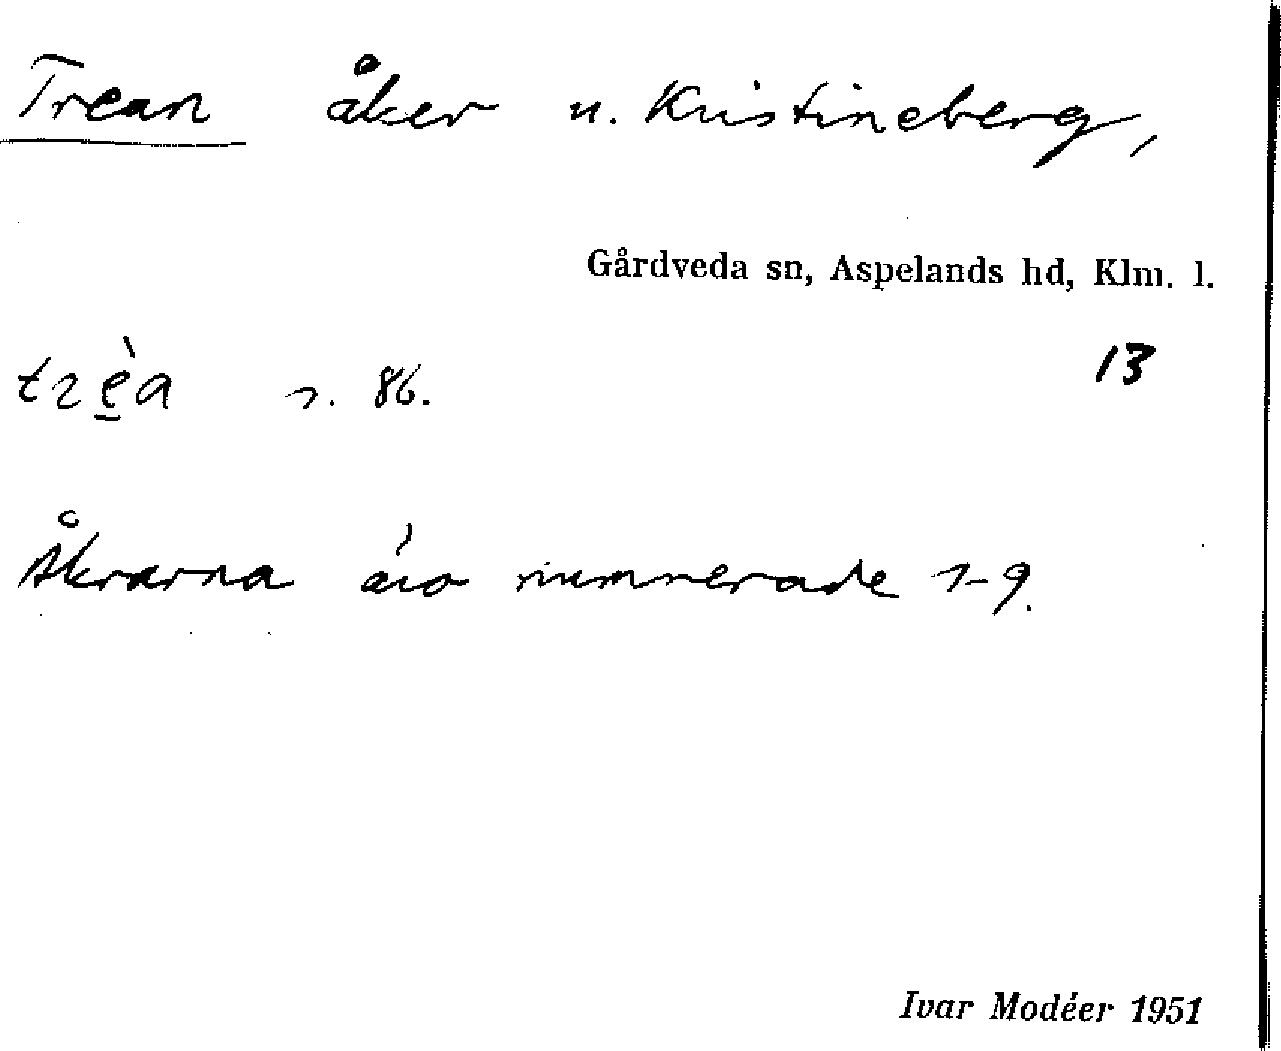 Trean åker u. Kristineberg,
Gårdveda sn, Aspelands hd, Klm. l.
13
trèa 86.
Åkrarna äro numrerade 1-9.
Ivar Modéer 1951